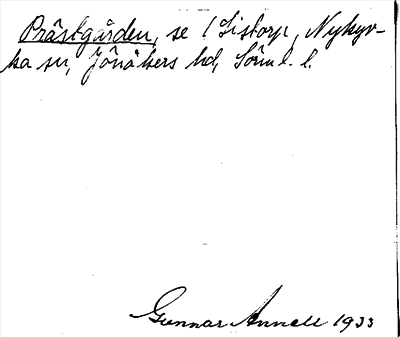 Prästgården, se 1 Sistorp, Nykyr-
ka sn, Jönåkers hd, Söml. l.
Gunnar Annell 1933